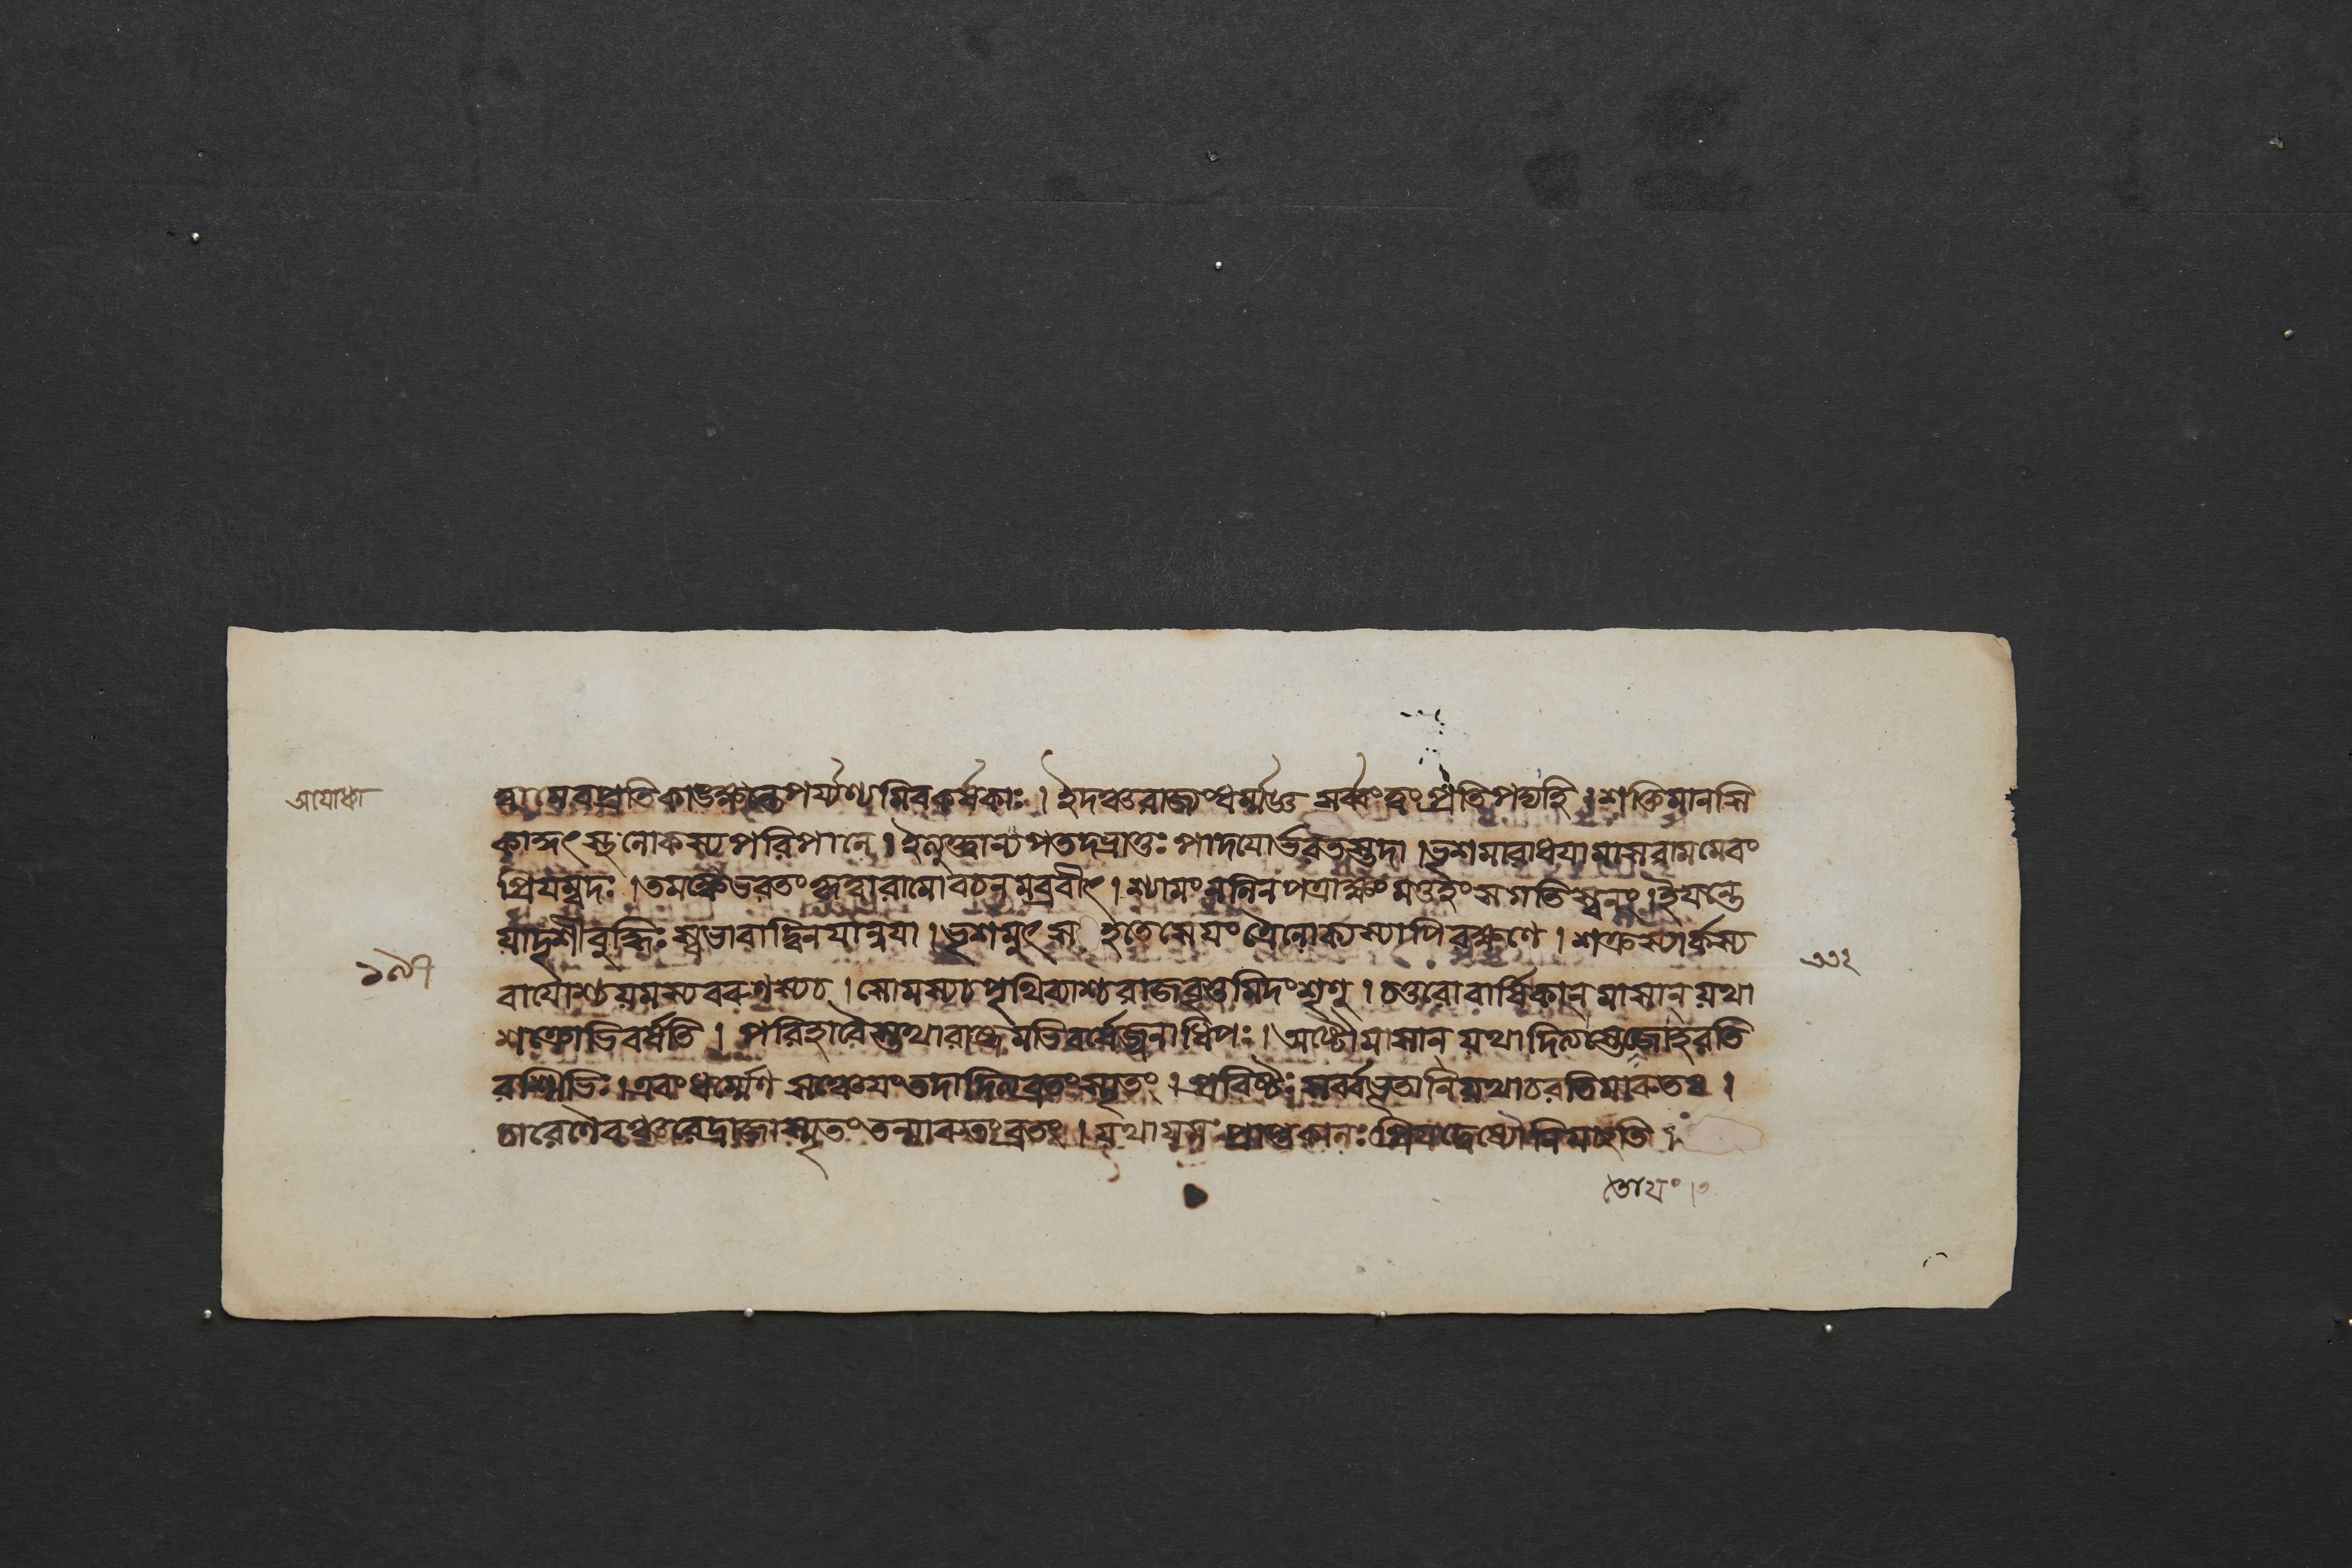 আযোধ্যা
ত্বামেবপ্রতিকাঙ্ক্ষন্তেপর্য্যন্যমিবকর্ষকাঃ । ইদঞ্চরাজ্যংধর্ম্মজ্ঞ সর্ব্বংত্বং প্রতিপদ্যহি । শক্তিমানসি
কাকুৎস্থলোকস্যপরিপালনে । ইত্যুক্ত্বান্যপতদ্ভ্রাতুঃ পাদযোর্ভরতস্তদা । ভৃশমারাধযামাসরামমেবং
প্রিযম্বদঃ । তমঙ্কেভরতংকৃত্বারামোবচনমব্রবীৎ । শ্যামংনলিনপত্রাক্ষং মত্তহংসগতিস্বনং । ইয়ন্তে
যাদৃশীবুদ্ধিঃ স্বভাবাদ্বিনযান্নযা । ভৃশমুৎস হতেসেয়ং ত্রৈলোক্যস্যাপিরক্ষণে । শক্রস্যার্কস্য
১৯৭
২৩২
বাযোশ্চযমস্যবরুণস্যচ । সোমস্যচপৃথিব্যাশ্চরাজবৃত্তমিদংশৃণু । চতুরোবার্ষিকান্ মাসান্ যথা
শক্রোভিবর্ষতি । পরিহারৈস্তথারাজ্যমভিবর্ষেজ্জনাধিপঃ । অষ্টৌমাসান্ যথাদিত্যস্তেজোহরতি
রশ্মিভিঃ । এবংধর্ম্মেণ সঞ্চেয়ংতদাদিত্যব্রতংস্মৃতং । প্রবিষ্টঃ সর্ব্বভূতানিযথাচরতিমারুতঃ ।
চারেণৈবঞ্চরেদ্রাজাস্মৃতং তন্মারুতংব্রতং । যথাযমঃ প্রাপ্তকালঃ প্রিযদ্বেষ্যৌনিযচ্ছতি ।